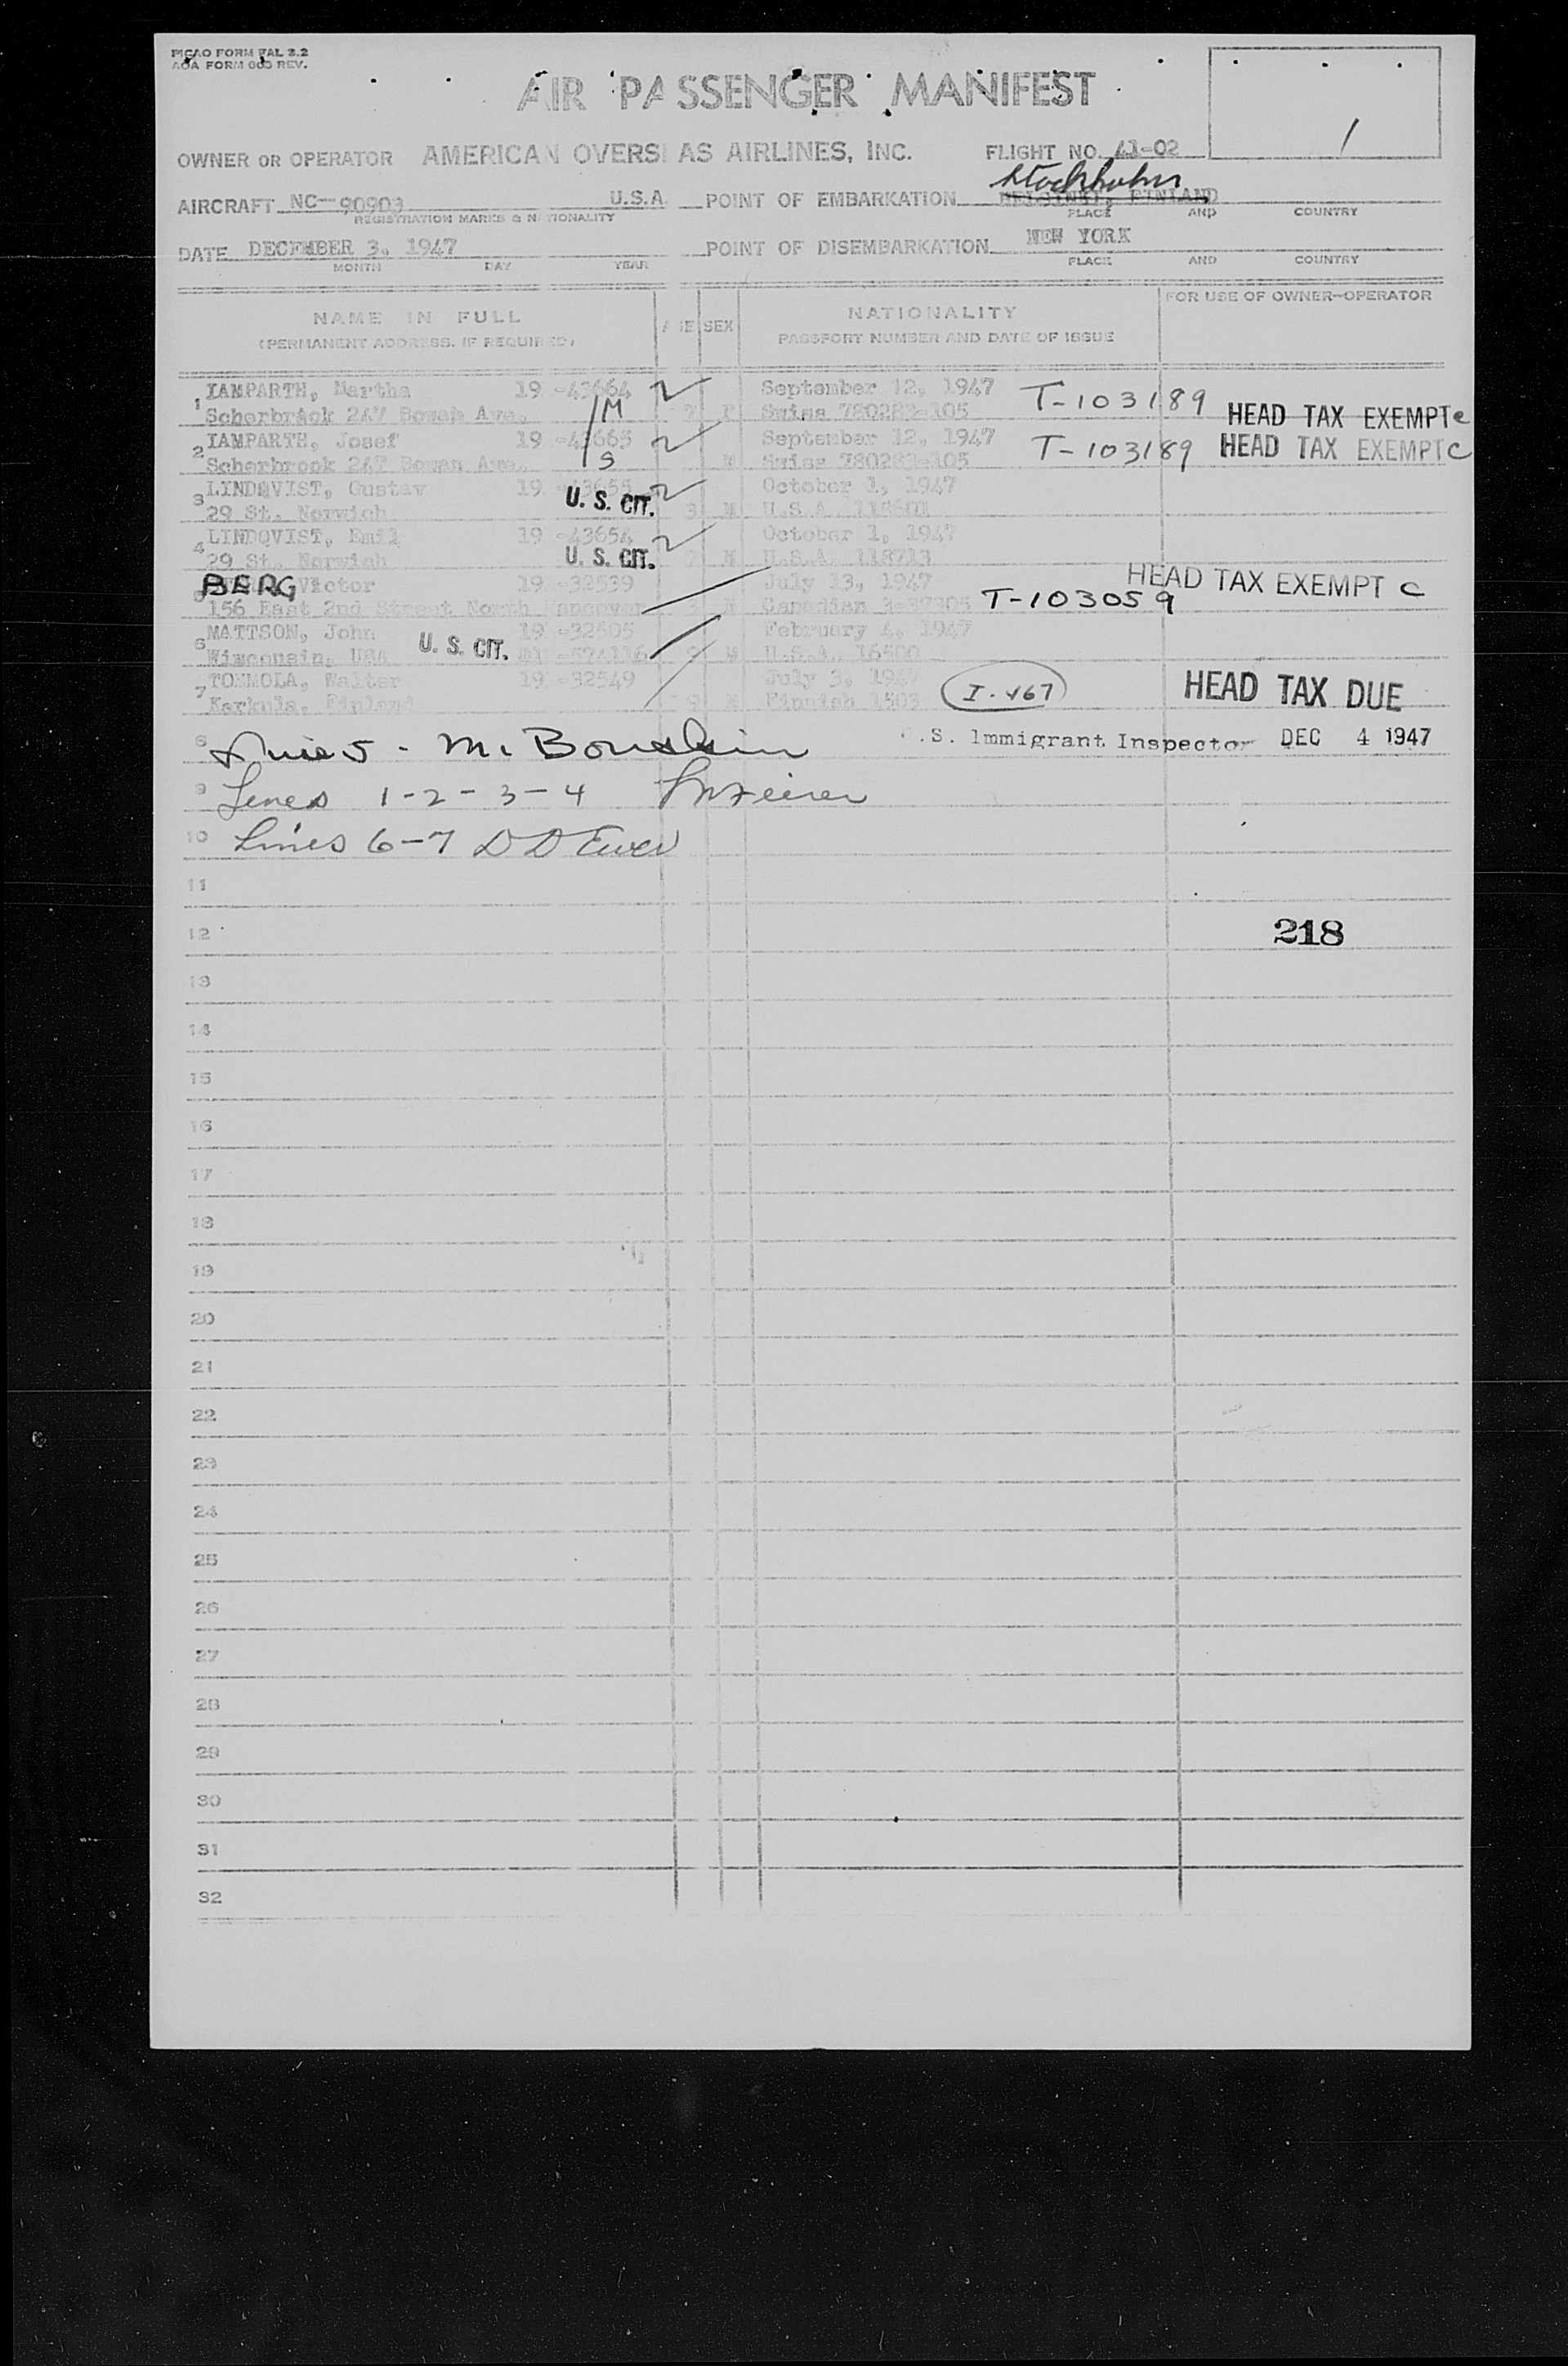 PICAO FORM FAL 3.2
AOA FORM 605 REV.
AIR PASSENGER MANIFEST
1
OWNER OR OPERATOR AMERICAN OVERSEAS AIRLINES, INC. FLIGHT NO. A1-02
Stockholm
AIRCRAFT NC-90903 U.S.A. POINT OF EMBARKATION HELSINKI, FINLAND
REGISTRATION MARKS & NATIONALITY PLACE AND COUNTRY
DATE DECEMBER 3, 1947 POINT OF DISEMBARKATION NEW YORK
MONTH DAY YEAR PLACE AND COUNTRY
NAME IN FULL AGE SEX NATIONALITY FOR USE OF OWNER-OPERATOR
(PERMANENT ADDRESS, IF REQUIRED) PASSPORT NUMBER AND DATE OF ISSUE
1 LAMPARTH, Martha 19 -43664 September 12, 1947 T-103189 HEAD TAX EXEMPT C
Scherbrook 247 Bowen Ave. M F Swiss 780282-105
2 LAMPARTH, Josef 19 -43665 September 12, 1947 T-103189 HEAD TAX EXEMPT C
Scherbrook 247 Bowen Ave. S M Swiss 780282-105
3 LINDQVIST, Gustav 19 -43655 October 1, 1947
29 St. Norwich U. S. CIT. M U.S.A.
4 LINDQVIST, Emil 19 -43654 October 1, 1947
29 St. Norwich U. S. CIT. M U.S.A. 118713
BERG Victor 19 -32539 July 13, 1947 HEAD TAX EXEMPT C
156 East 2nd Street North Vancouver Canadian T-103059
6 MATTSON, John U. S. CIT. 19 -32505 February 4, 1947
Wisconsin, USA M U.S.A. 16500
7 TOMMOLA, Walter 19 -32549 July 3, 1947 I-467 HEAD TAX DUE
Karkula, Finland M Finnish 1503
8 Line 5 - M.
U.S. Immigrant Inspector DEC 4 1947
9 Lines 1-2-3-4
10 Lines 6-7 D D Ewer
11
12 218
13
14
15
16
17
18
19
20
21
22
23
24
25
26
27
28
29
30
31
32